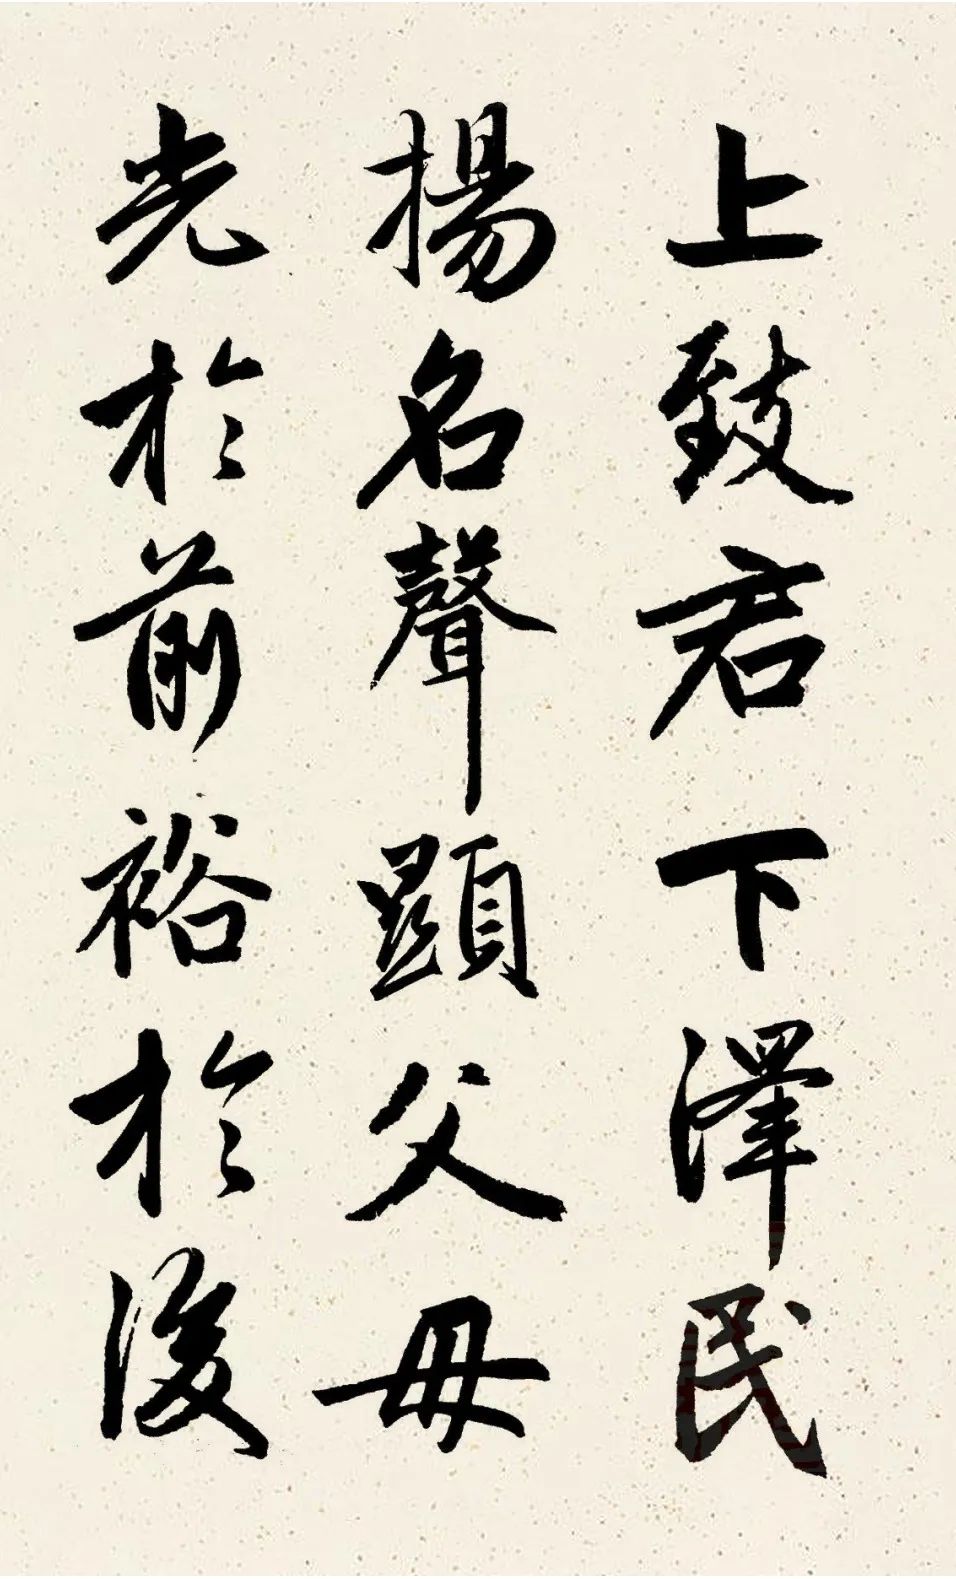 上致君下澤民
揚名聲顯父母
光於前裕於後